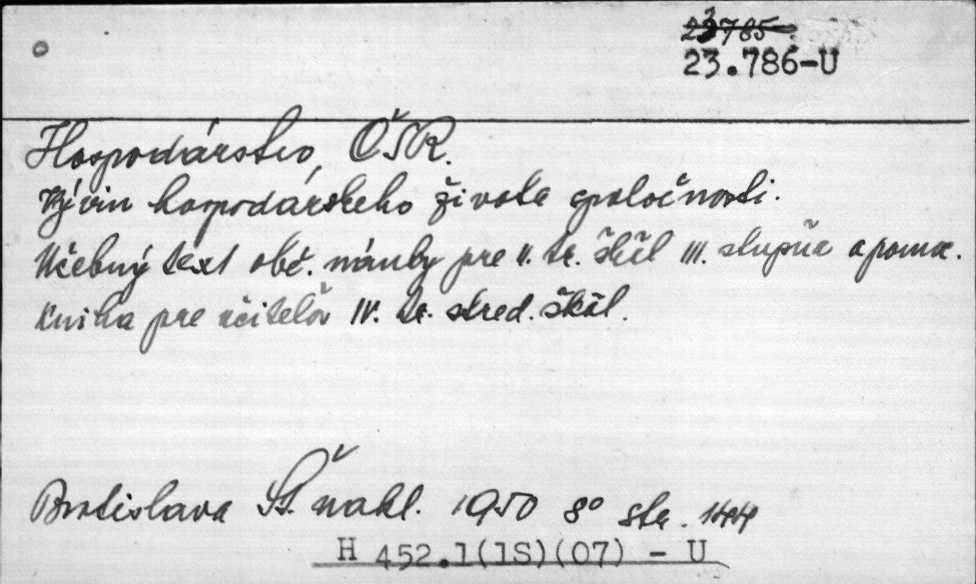 23785
23.786-U
Hospodárstvo, ČSR.
Vývin hospodárskeho života spoločnosti.
Učebný text obč. náuky pre II. tr. škôl III. stupňa a pomoc.
kniha pre učiteľov IV. tr. stred. škôl.
Bratislava Št. nakl. 1950 8° str. 144
H 452.1(1S)(07) - U